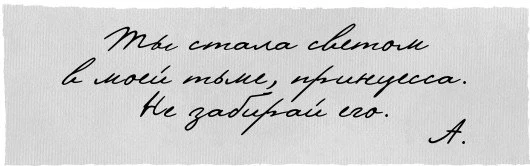 Ты стала светом
в моей тьме, принцесса.
Не забирай его.
А.